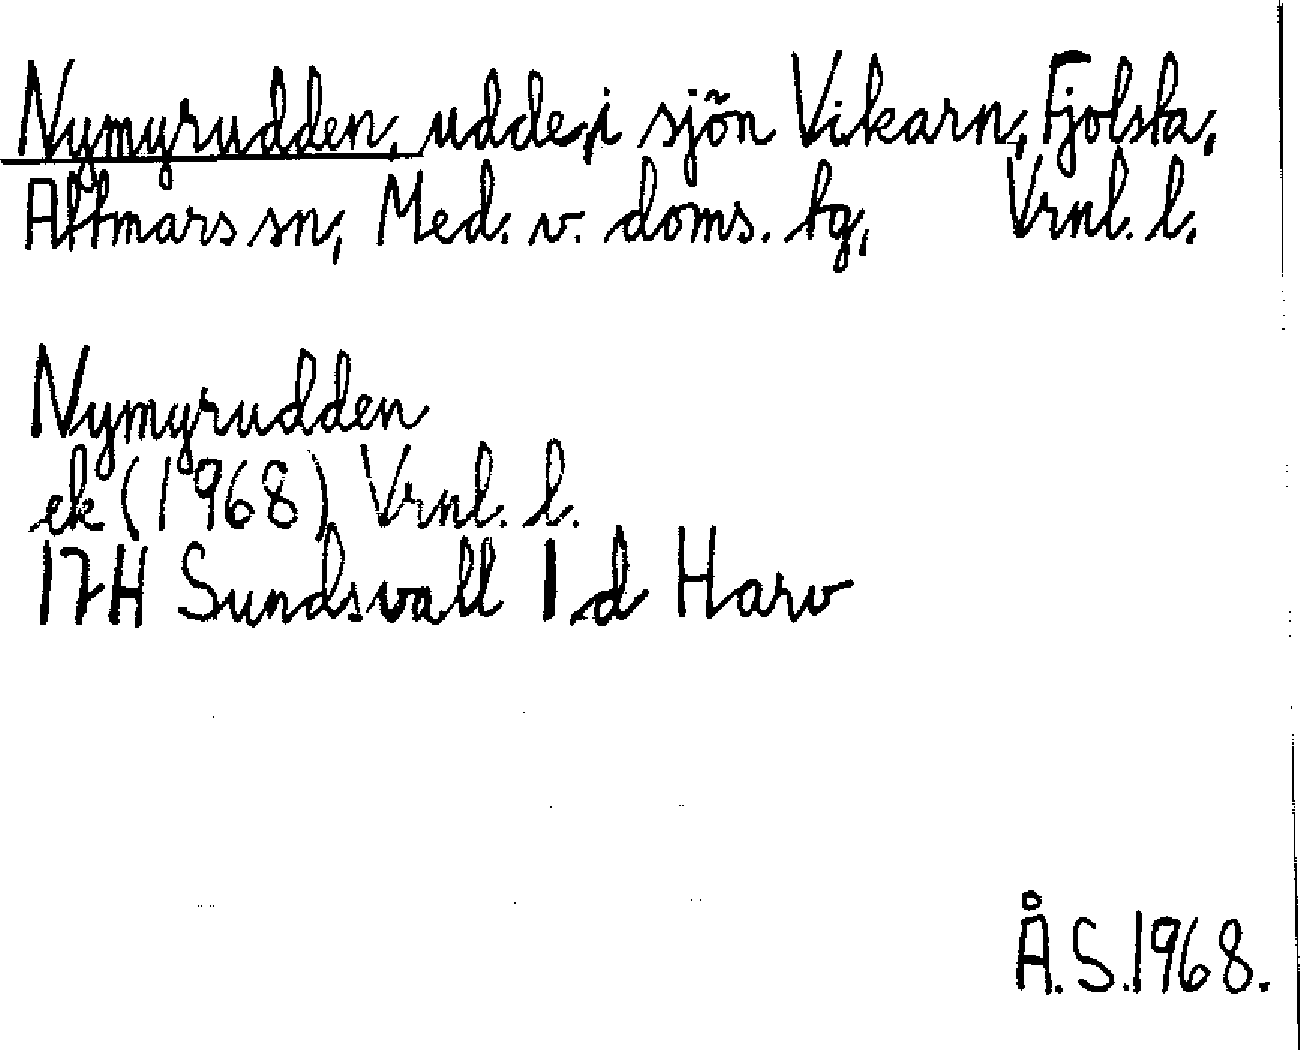 Nymyrudden, udde, i sjön Vikarn, Fjolsta,
Attmars sn, Med. v. doms. tg, Vrnl. l.
Nymyrudden
ek (1968) Vrnl. l.
17H Sundsvall 1 d Harv
Å.S.1968.